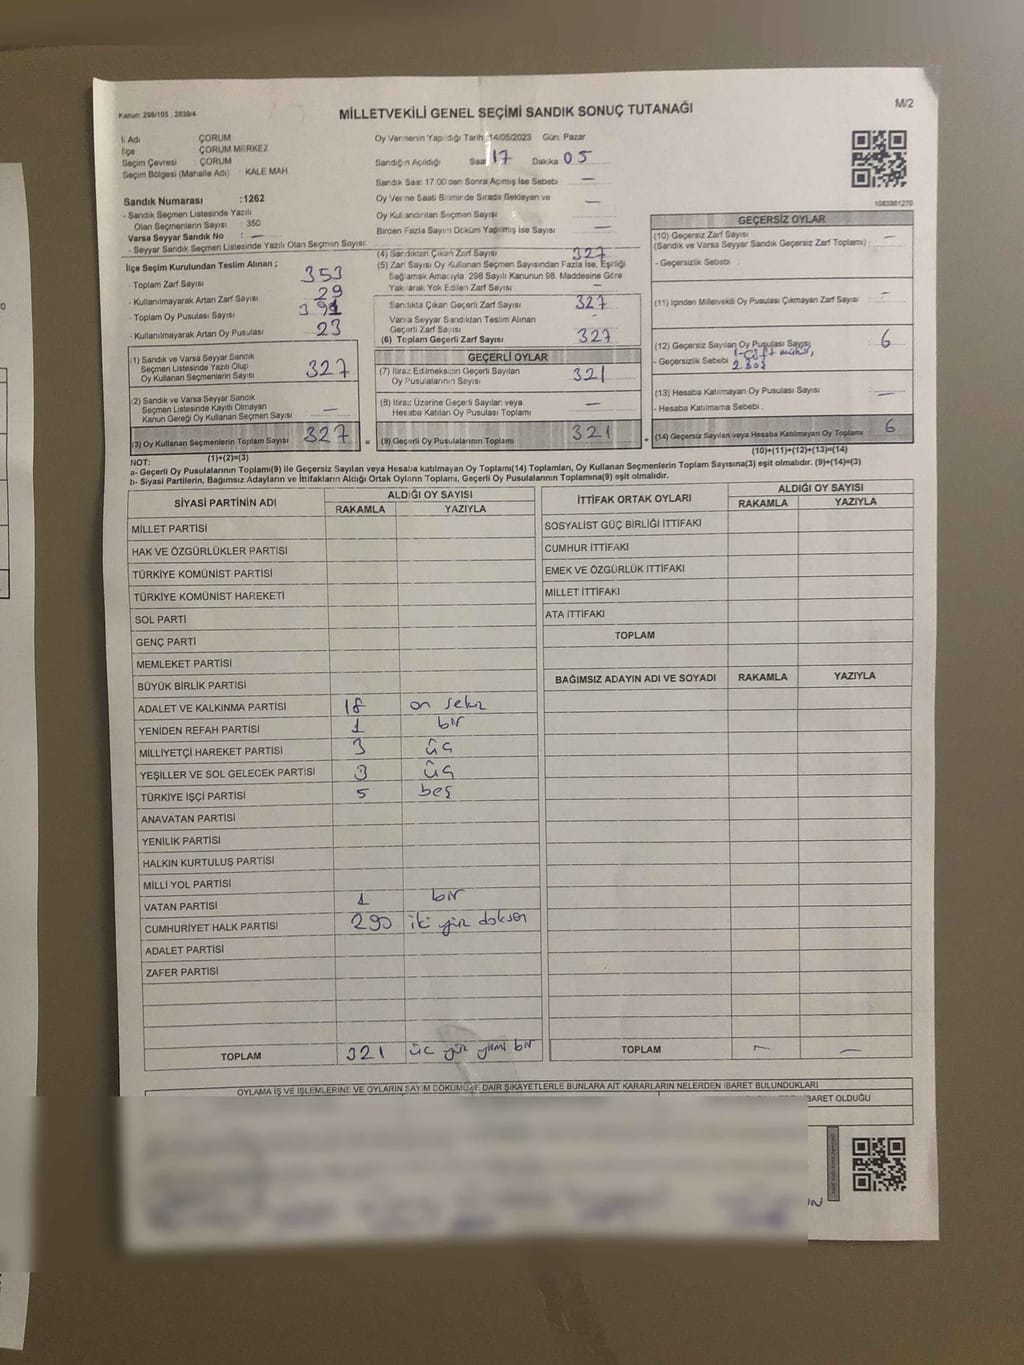 Kanun: 298/105 , 2839/4
MİLLETVEKİLİ GENEL SEÇİMİ SANDIK SONUÇ TUTANAĞI
M/2
İl Adı ÇORUM
İlçe ÇORUM MERKEZ
Seçim Çevresi : ÇORUM
Seçim Bölgesi (Mahalle Adı) : KALE MAH
Sandık Numarası :1262
- Sandık Seçmen Listesinde Yazılı
Olan Seçmenlerin Sayısı : 350
Varsa Seyyar Sandık No : —
- Seyyar Sandık Seçmen Listesinde Yazılı Olan Seçmen Sayısı:
Oy Vermenin Yapıldığı Tarih 14/05/2023 Gün: Pazar
Sandığın Açıldığı Saat 17 Dakika 05
Sandık Saat 17.00'den Sonra Açılmış İse Sebebi —
Oy Verme Saati Bitiminde Sırada Bekleyen ve —
Oy Kullandırılan Seçmen Sayısı
Birden Fazla Sayım Döküm Yapılmış İse Sayısı —
1083861270
İlçe Seçim Kurulundan Teslim Alınan ;
- Toplam Zarf Sayısı 353
- Kullanılmayarak Artan Zarf Sayısı 29
- Toplam Oy Pusulası Sayısı
- Kullanılmayarak Artan Oy Pusulası 23
(1) Sandık ve Varsa Seyyar Sandık
Seçmen Listesinde Yazılı Olup
Oy Kullanan Seçmenlerin Sayısı 327
(2) Sandık ve Varsa Seyyar Sandık
Seçmen Listesinde Kayıtlı Olmayan
Kanun Gereği Oy Kullanan Seçmen Sayısı —
(3) Oy Kullanan Seçmenlerin Toplam Sayısı 327 =
(1)+(2)=(3)
(4) Sandıktan Çıkan Zarf Sayısı 327
(5) Zarf Sayısı Oy Kullanan Seçmen Sayısından Fazla İse, Eşitliği
Sağlamak Amacıyla 298 Sayılı Kanunun 98. Maddesine Göre
Yakılarak Yok Edilen Zarf Sayısı —
Sandıkta Çıkan Geçerli Zarf Sayısı 327
Varsa Seyyar Sandıktan Teslim Alınan
Geçerli Zarf Sayısı
(6) Toplam Geçerli Zarf Sayısı 327
GEÇERLİ OYLAR
(7) İtiraz Edilmeksizin Geçerli Sayılan
Oy Pusulalarının Sayısı 321
(8) İtiraz Üzerine Geçerli Sayılan veya
Hesaba Katılan Oy Pusulası Toplamı —
(9) Geçerli Oy Pusulalarının Toplamı 321 +
GEÇERSİZ OYLAR
(10) Geçersiz Zarf Sayısı —
(Sandık ve Varsa Seyyar Sandık Geçersiz Zarf Toplamı) :
- Geçersizlik Sebebi :
(11) İçinden Milletvekili Oy Pusulası Çıkmayan Zarf Sayısı : —
(12) Geçersiz Sayılan Oy Pusulası Sayısı 6
- Geçersizlik Sebebi 1-Çift mühür,
2-Boş
(13) Hesaba Katılmayan Oy Pusulası Sayısı : —
- Hesaba Katılmama Sebebi :
(14) Geçersiz Sayılan veya Hesaba Katılmayan Oy Toplamı 6
(10)+(11)+(12)+(13)=(14)
NOT:
a- Geçerli Oy Pusulalarının Toplamı(9) ile Geçersiz Sayılan veya Hesaba katılmayan Oy Toplamı(14) Toplamları, Oy Kullanan Seçmenlerin Toplam Sayısına(3) eşit olmalıdır. (9)+(14)=(3)
b- Siyasi Partilerin, Bağımsız Adayların ve İttifakların Aldığı Ortak Oyların Toplamı, Geçerli Oy Pusulalarının Toplamına(9) eşit olmalıdır.
SİYASİ PARTİNİN ADI ALDIĞI OY SAYISI
RAKAMLA YAZIYLA
MİLLET PARTİSİ
HAK VE ÖZGÜRLÜKLER PARTİSİ
TÜRKİYE KOMÜNİST PARTİSİ
TÜRKİYE KOMÜNİST HAREKETİ
SOL PARTİ
GENÇ PARTİ
MEMLEKET PARTİSİ
BÜYÜK BİRLİK PARTİSİ
ADALET VE KALKINMA PARTİSİ 18 on sekiz
YENİDEN REFAH PARTİSİ 1 bir
MİLLİYETÇİ HAREKET PARTİSİ 3 üç
YEŞİLLER VE SOL GELECEK PARTİSİ 3 üç
TÜRKİYE İŞÇİ PARTİSİ 5 beş
ANAVATAN PARTİSİ
YENİLİK PARTİSİ
HALKIN KURTULUŞ PARTİSİ
MİLLİ YOL PARTİSİ
VATAN PARTİSİ 1 bir
CUMHURİYET HALK PARTİSİ 290 iki yüz doksan
ADALET PARTİSİ
ZAFER PARTİSİ
TOPLAM 321 üç yüz yirmi bir
İTTİFAK ORTAK OYLARI ALDIĞI OY SAYISI
RAKAMLA YAZIYLA
SOSYALİST GÜÇ BİRLİĞİ İTTİFAKI
CUMHUR İTTİFAKI
EMEK VE ÖZGÜRLÜK İTTİFAKI
MİLLET İTTİFAKI
ATA İTTİFAKI
TOPLAM
BAĞIMSIZ ADAYIN ADI VE SOYADI RAKAMLA YAZIYLA
TOPLAM — —
OYLAMA İŞ VE İŞLEMLERİNE VE OYLARIN SAYIM DÖKÜMÜNE DAİR ŞİKAYETLERLE BUNLARA AİT KARARLARIN NELERDEN İBARET BULUNDUKLARI
İBARET OLDUĞU